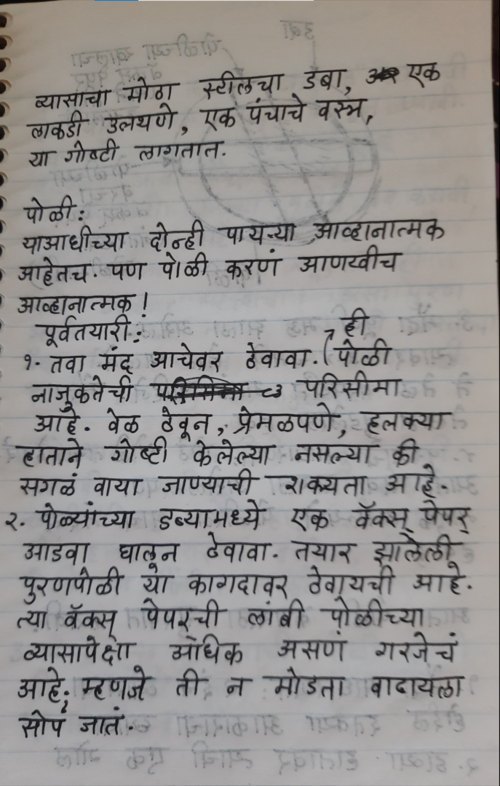 व्यासाचा मोठा स्टीलचा डबा, एक
लाकडी उलथणे, एक पंचाचे वस्त्र,
या गोष्टी लागतात.
पोळी:
याआधीच्या दोन्ही पायऱ्या आव्हानात्मक
आहेतच. पण पोळी करणं आणखीच
आव्हानात्मक!
पूर्वतयारी:
१. तवा मंद आचेवर ठेवावा. (ही पोळी
नाजुकतेची परिसीमा
आहे. वेळ ठेवून, प्रेमळपणे, हलक्या
हाताने गोष्टी केलेल्या नसल्या की
सगळं वाया जाण्याची शक्यता आहे.
२. पोळ्यांच्या डब्यामध्ये एक वॅक्स् पेपर्
आडवा घालून ठेवावा. तयार झालेली
पुरणपोळी या कागदावर ठेवायची आहे.
त्या वॅक्स् पेपर्ची लांबी पोळीच्या
व्यासापेक्षा अधिक असणं गरजेचं
आहे; म्हणजे ती न मोडता वाढायला
सोपं जातं.